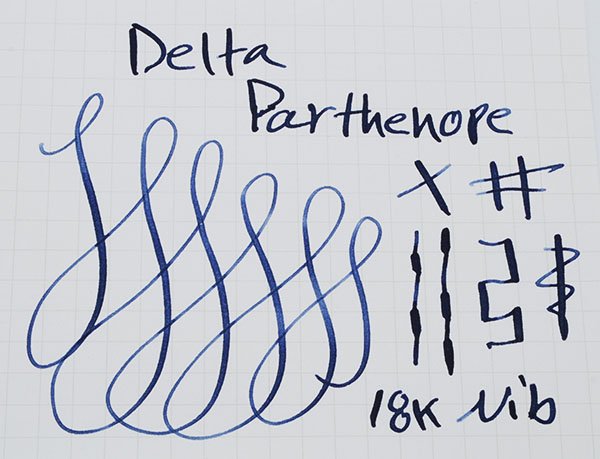 Delta
Parthenope
X #
18K Nib